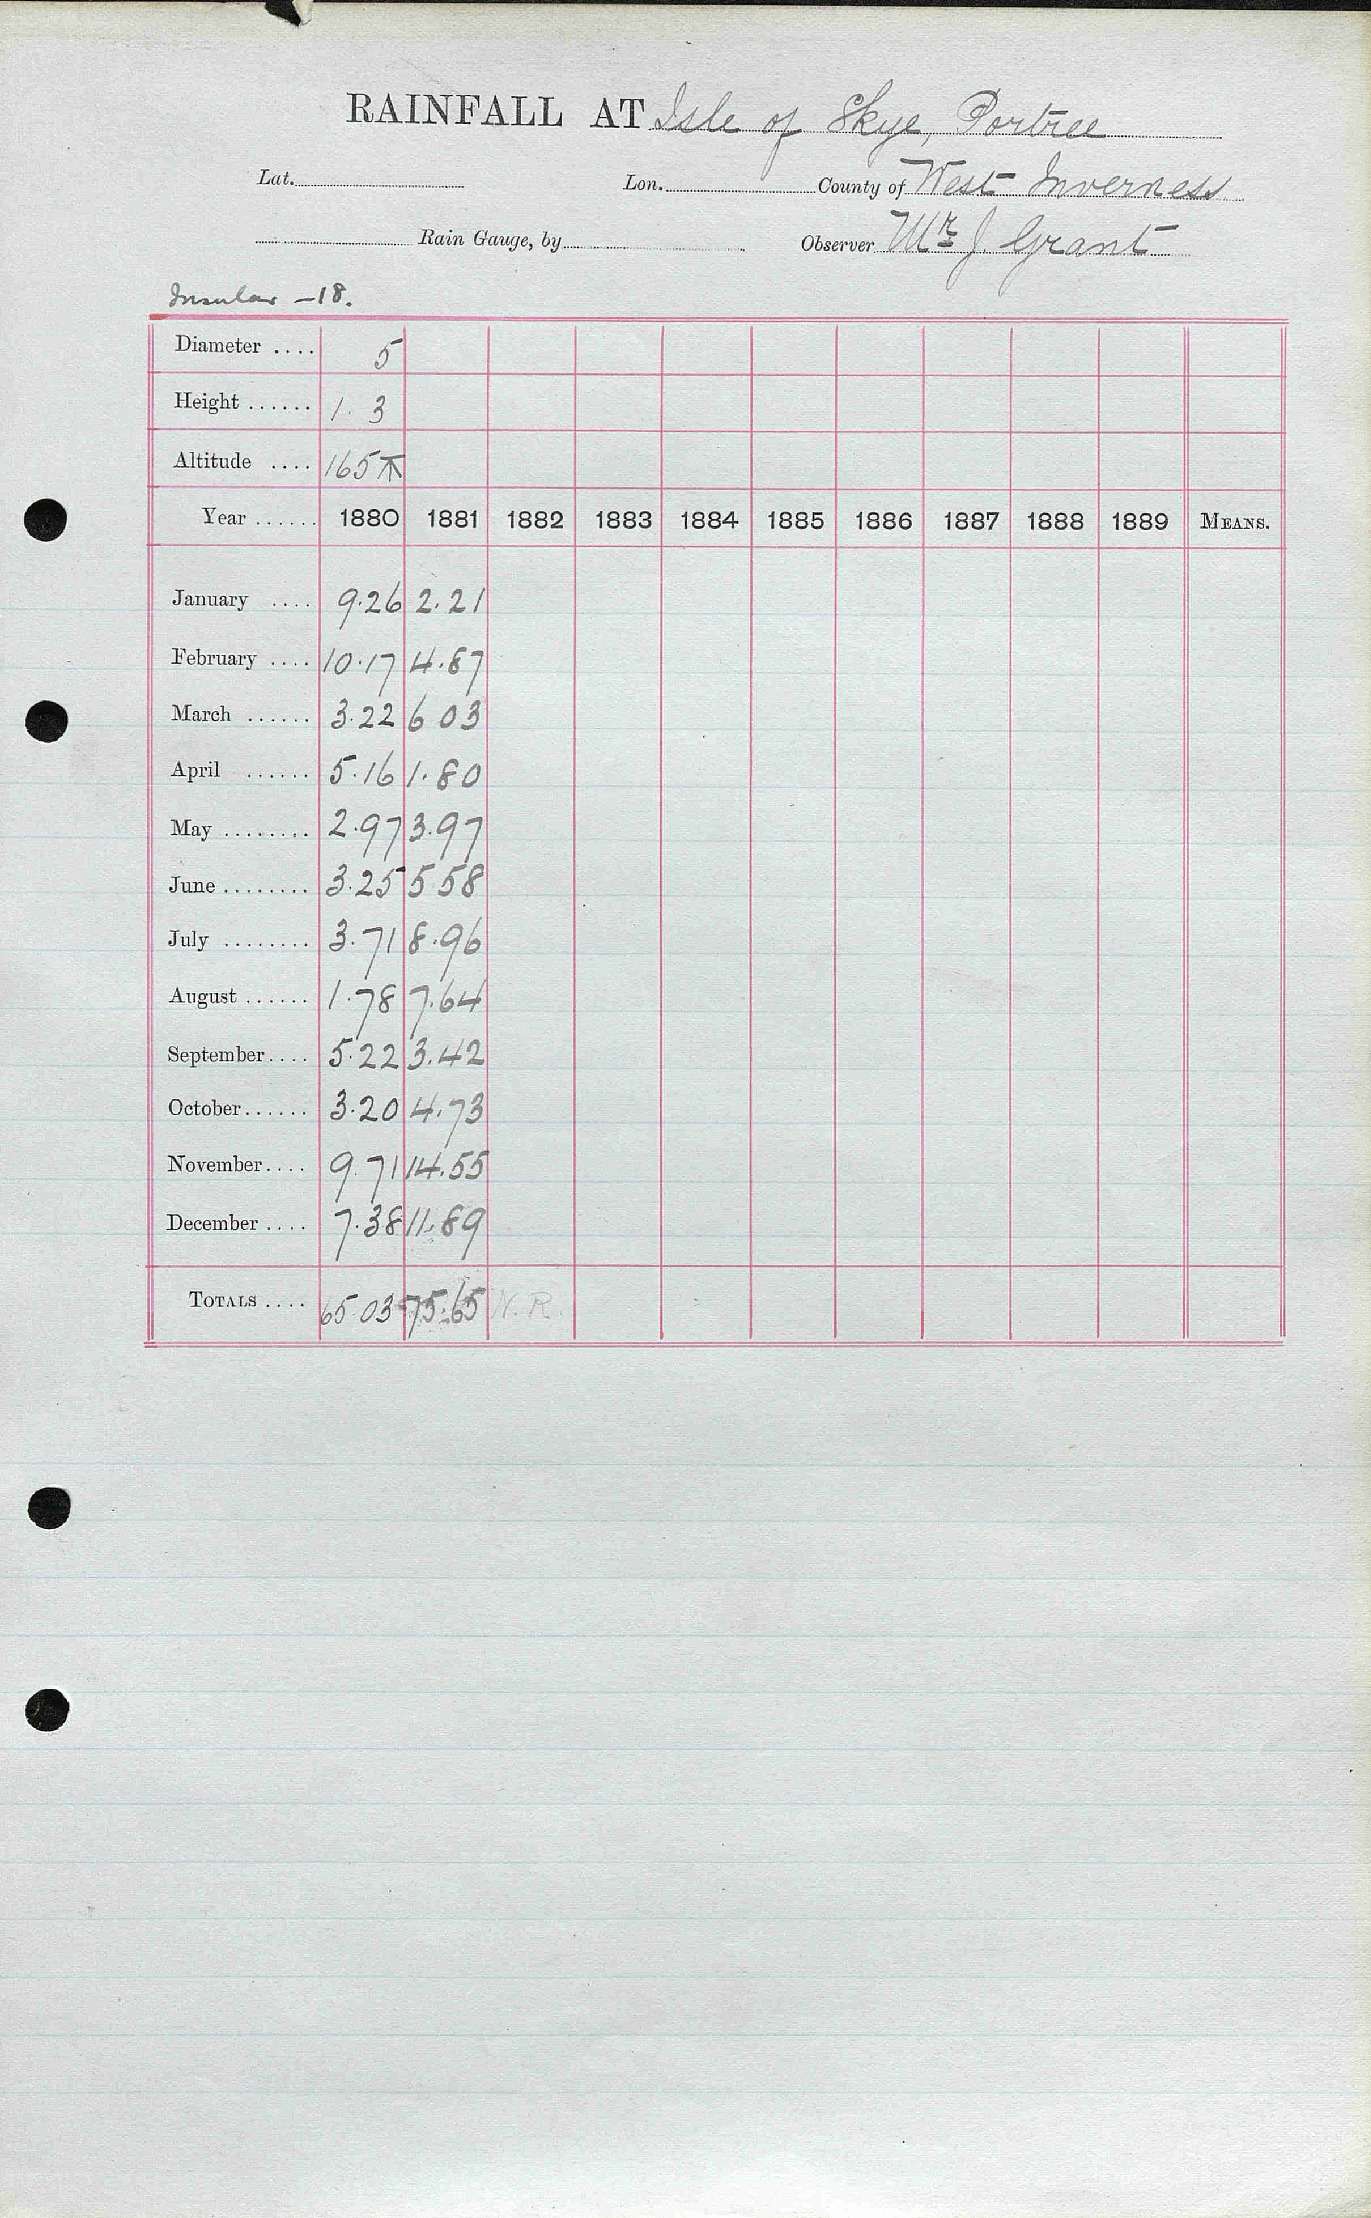 RAINFALL AT Isle of Skye, Portree
Lat. Lon. County of West Inverness
Rain Gauge, by Observer Mr J. Grant
Insular -18.
Diameter .... 5
Height ...... 1. 3
Altitude .... 165
Year ...... 1880 1881 1882 1883 1884 1885 1886 1887 1888 1889 MEANS.
January .... 9.26 2.21
February .... 10.17 4.87
March ...... 3.22 6 03
April ...... 5.16 1.80
May ........ 2.97 3.97
June ........ 3.25 5 58
July ........ 3.71 8.96
August ...... 1.78 7.64
September.... 5.22 3.42
October...... 3.20 4.73
November.... 9.71 14.55
December .... 7.38 11.89
TOTALS .... 65.03 75.65 N.R.